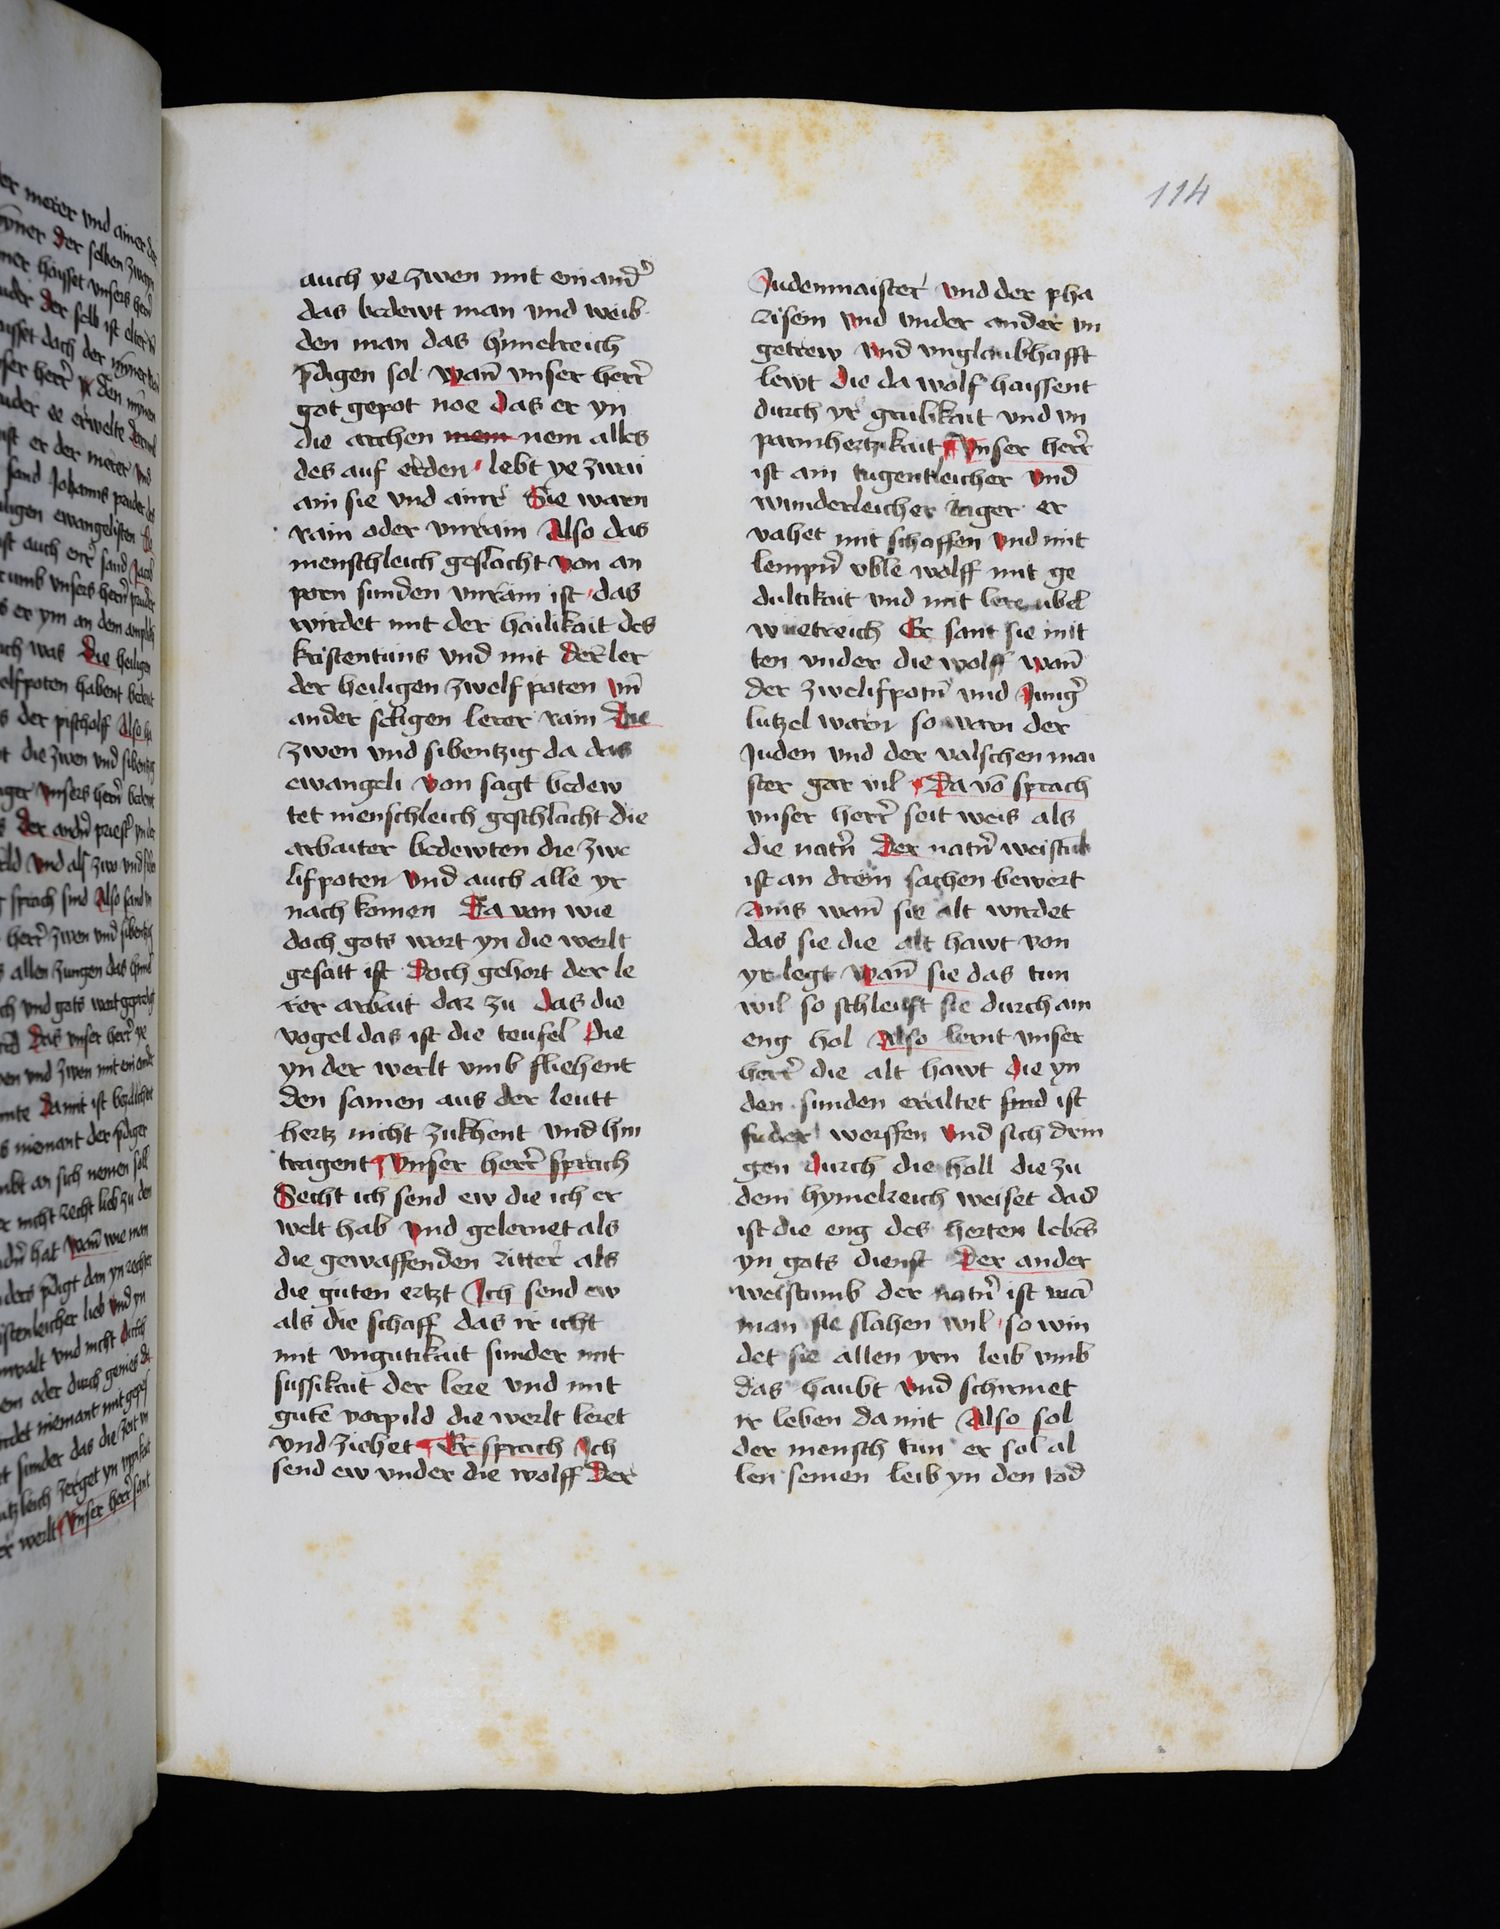 114
auch ye zwen mit einand̕
das bedewt man vnd weib
den man das hymelreich
p̄digen sol wan̄ vnser herr̕
got gepot noe das er yn
die archen mem nem alles
des auf erden lebt ye zwu
ain sie vnd ainr̕ Sie warn
rain oder vnrain Also das
menschleich geslacht von an
porn sunden vnrain ist das
wirdet mit der hailikait des
kristentums vnd mit der ler
der heiligen zwelf poten vn̄
ander seligen lerer rain Die
zwen vnd sibentzig da das
ewangeli von sagt bedew
tet menschleich geschlacht die
arbaiter bedewten die zwe
lifpoten vnd auch alle yr
nach komen Da von wie
doch gots wort yn die werlt
gesatt ist Doch gehort der le
rer arbait dar zu das die
vogel das ist die teufel Die
yn der werlt vmb fliehent
den samen aus der leutt
hertz nicht zukhent vnd hin
tragent Vnser herr̕ sprach
Secht ich send ew die ich er
welt hab vnd gelernet als
die gewaffenden ritter als
die guten ertzt Ich send ew
als die schaff das ir icht
mit vngutikait sunder mit
sussikait der lere vnd mit
gute vorpild die werlt leret
vnd ziehet Er sprach Ich
send ew vnder die wolff Der
Judenmaister vnd der pha
risein vnd vnder ander vn
getrew vnd vnglaubhafft
lewt die da wolf haissent
durch yr greulikait vnd vn
parmhertzikait Vnser herr̕
ist ain tugentleicher vnd
wunderleicher iager er
vahet mit schaffen vnd mit
lempn̄ vble wolff mit ge
dultikait vnd mit lere ubel
wuetreich Er sant sie mit
ten vnder die wolff wan̄
der zwelifpotn̄ vnd Jung̕
lutzel warn so warn der
Juden vnd der valschen mai
ster gar vil Da vō sprach
vnser herr̕ seit weis als
die natn̄ Der natn̄ weistub
ist an drein sachen bewert
Ains wan̄ sie alt wirdet
das sie die alt hawt von
yr legt wan̄ sie das tun
wil so schleufft sie durch ain
eng hol Also lernt vnser
herr̕ die alt hawt die yn
den sunden eraltet sind ist
fuder werffen vnd sich drin
gen durch die holl die zu
dem hymelreich weiset das
ist die eng des herten lebēs
yn gots dienst Der ander
weistumb der natn̄ ist wā
man sie slahen wil so win
det sie allen yrn leib vmb
das haubt vnd schirmet
ir leben damit Also sol
der mensch tun er sol al
len seinen leib yn den tod